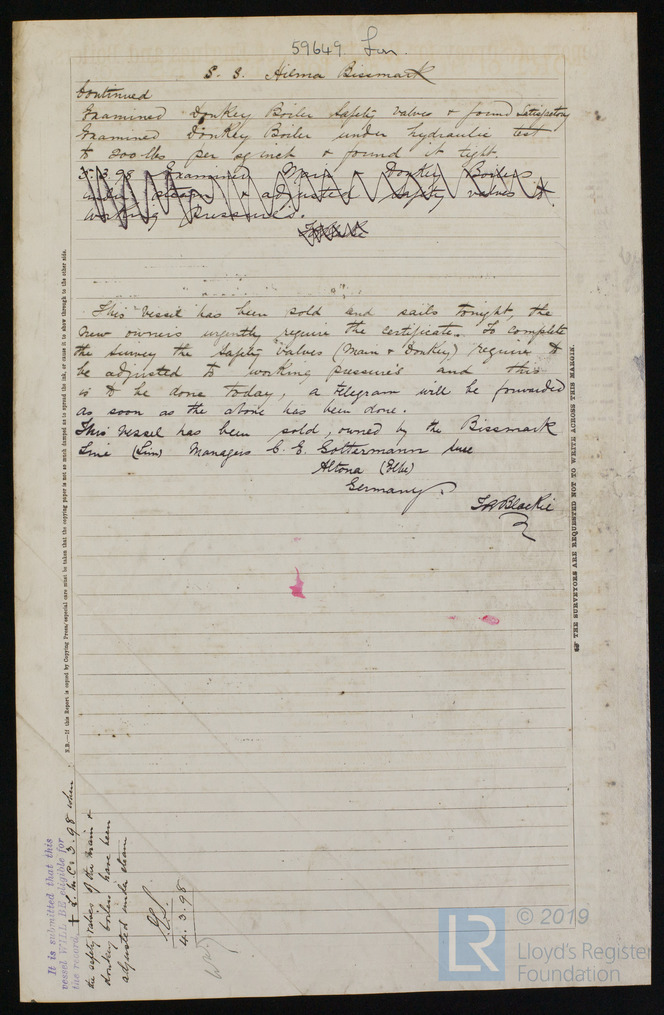 59649 Lon.
S. S. Hilma Bissmark
Continued
Examined Donkey Boiler Safety valves + found Satisfactory
Examined Donkey Boiler under hydraulic test
to 200 lbs per sq inch & found it tight.
3.3.98 Examined Main + Donkey Boilers
under steam & adjusted Safety valves to
working pressures.
This vessel has been sold and sails tonight, the
new owners urgently require the certificate. To complete
the survey the Safety valves (Main + Donkey) require to
be adjusted to working pressures and this
is to be done today, a telegram will be forwarded
as soon as the above has been done.
This vessel has been sold, owned by the Bissmark
Line (Lim) Managers C. E. Gottermann
Altona (Elbe)
Germany
Blackie
N.B.—If this Report is copied by Copying Press, especial care must be taken that the copying paper is not so much damped as to spread the ink, or cause it to show through to the other side.
THE SURVEYORS ARE REQUESTED NOT TO WRITE ACROSS THIS MARGIN.
It is submitted that this
vessel WILL BE eligible for
the record + L.M.C. 3.98 when
the safety valves of the main &
donkey boilers have been
adjusted under steam
4.3.98
© 2019
LR
Lloyd's Register
Foundation